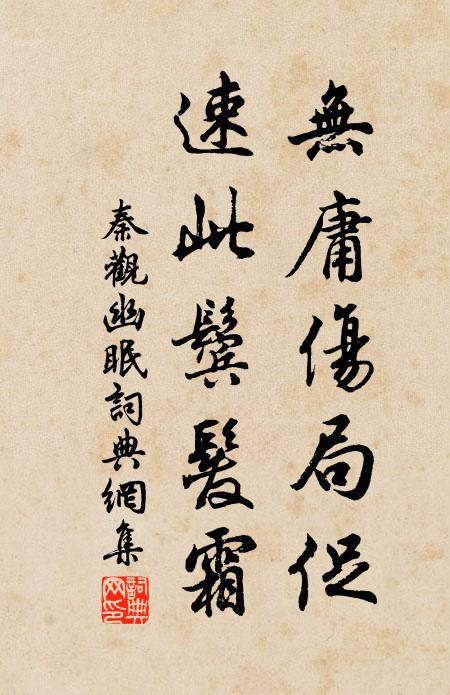 無庸傷局促
速此鬓髮霜
秦觀幽眠詞典網集
詞典
网印